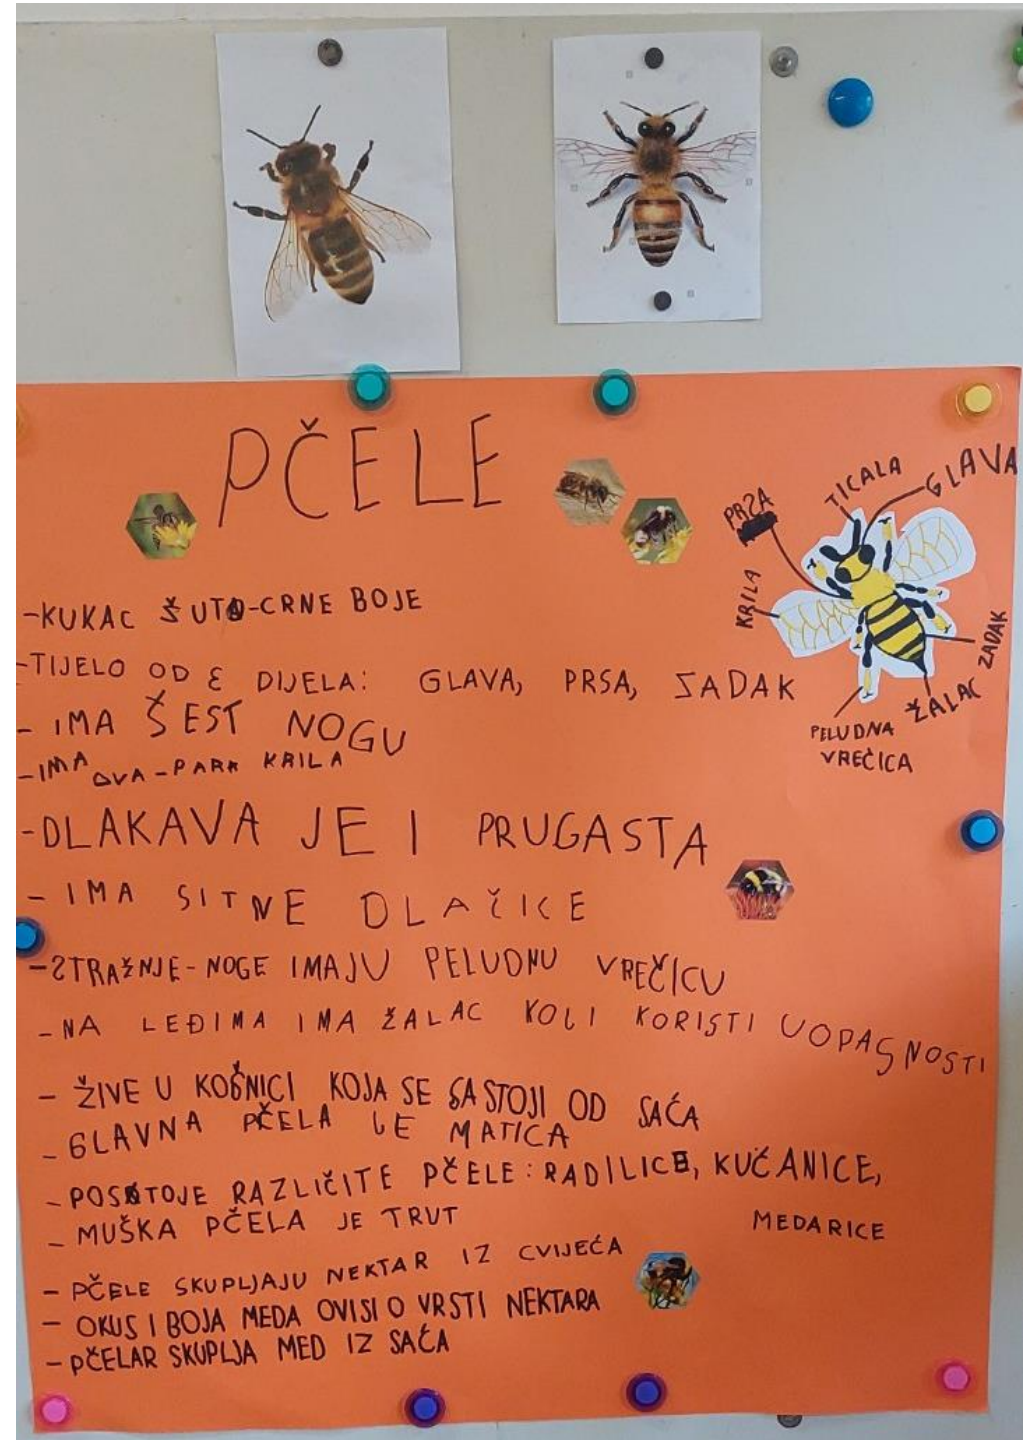 PČELE
TICALA
GLAVA
PRSA
KRILA
ZADAK
ŽALAC
PELUDNA
VREČICA
-KUKAC ŠUTO-CRNE BOJE
-TIJELO OD 3 DIJELA: GLAVA, PRSA, ZADAK
- IMA ŠEST NOGU
-IMA DVA-PARA KRILA
-DLAKAVA JE I PRUGASTA
- IMA SITNE DLAČICE
-STRAŽNJE-NOGE IMAJU PELUDNU VREČICU
-NA LEĐIMA IMA ŽALAC KOLI KORISTI UOPASNOSTI
- ŽIVE U KOŠNICI KOJA SE SASTOJI OD SAĆA
- GLAVNA PČELA JE MATICA
- POSTOJE RAZLIČITE PČELE: RADILICE, KUĆANICE,
MEDARICE
- MUŠKA PČELA JE TRUT
- PČELE SKUPLJAJU NEKTAR IZ CVIJEĆA
- OKUS I BOJA MEDA OVISI O VRSTI NEKTARA
- PČELAR SKUPLJA MED IZ SAĆA